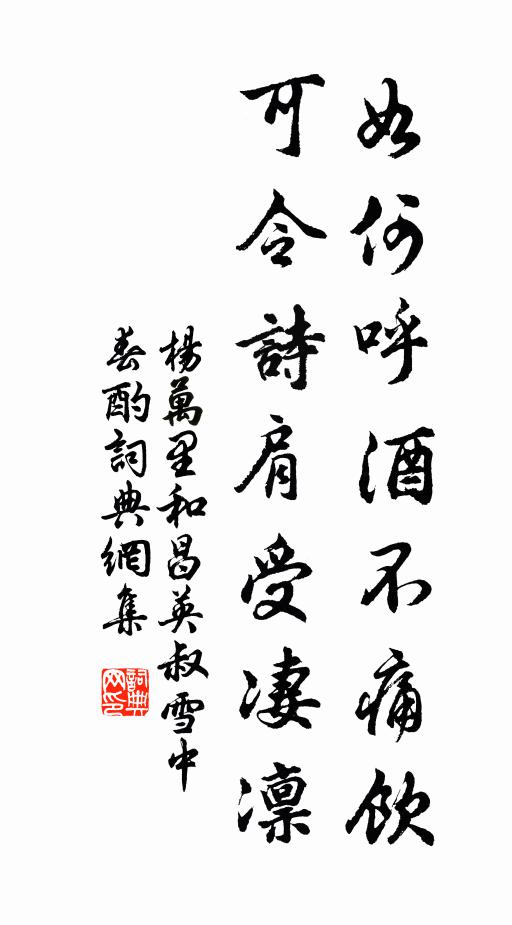 如何呼酒不痛飲
可令詩肩受凄凛
楊萬里和昌英叔雪中
春酌詞典網集
詞典
网印